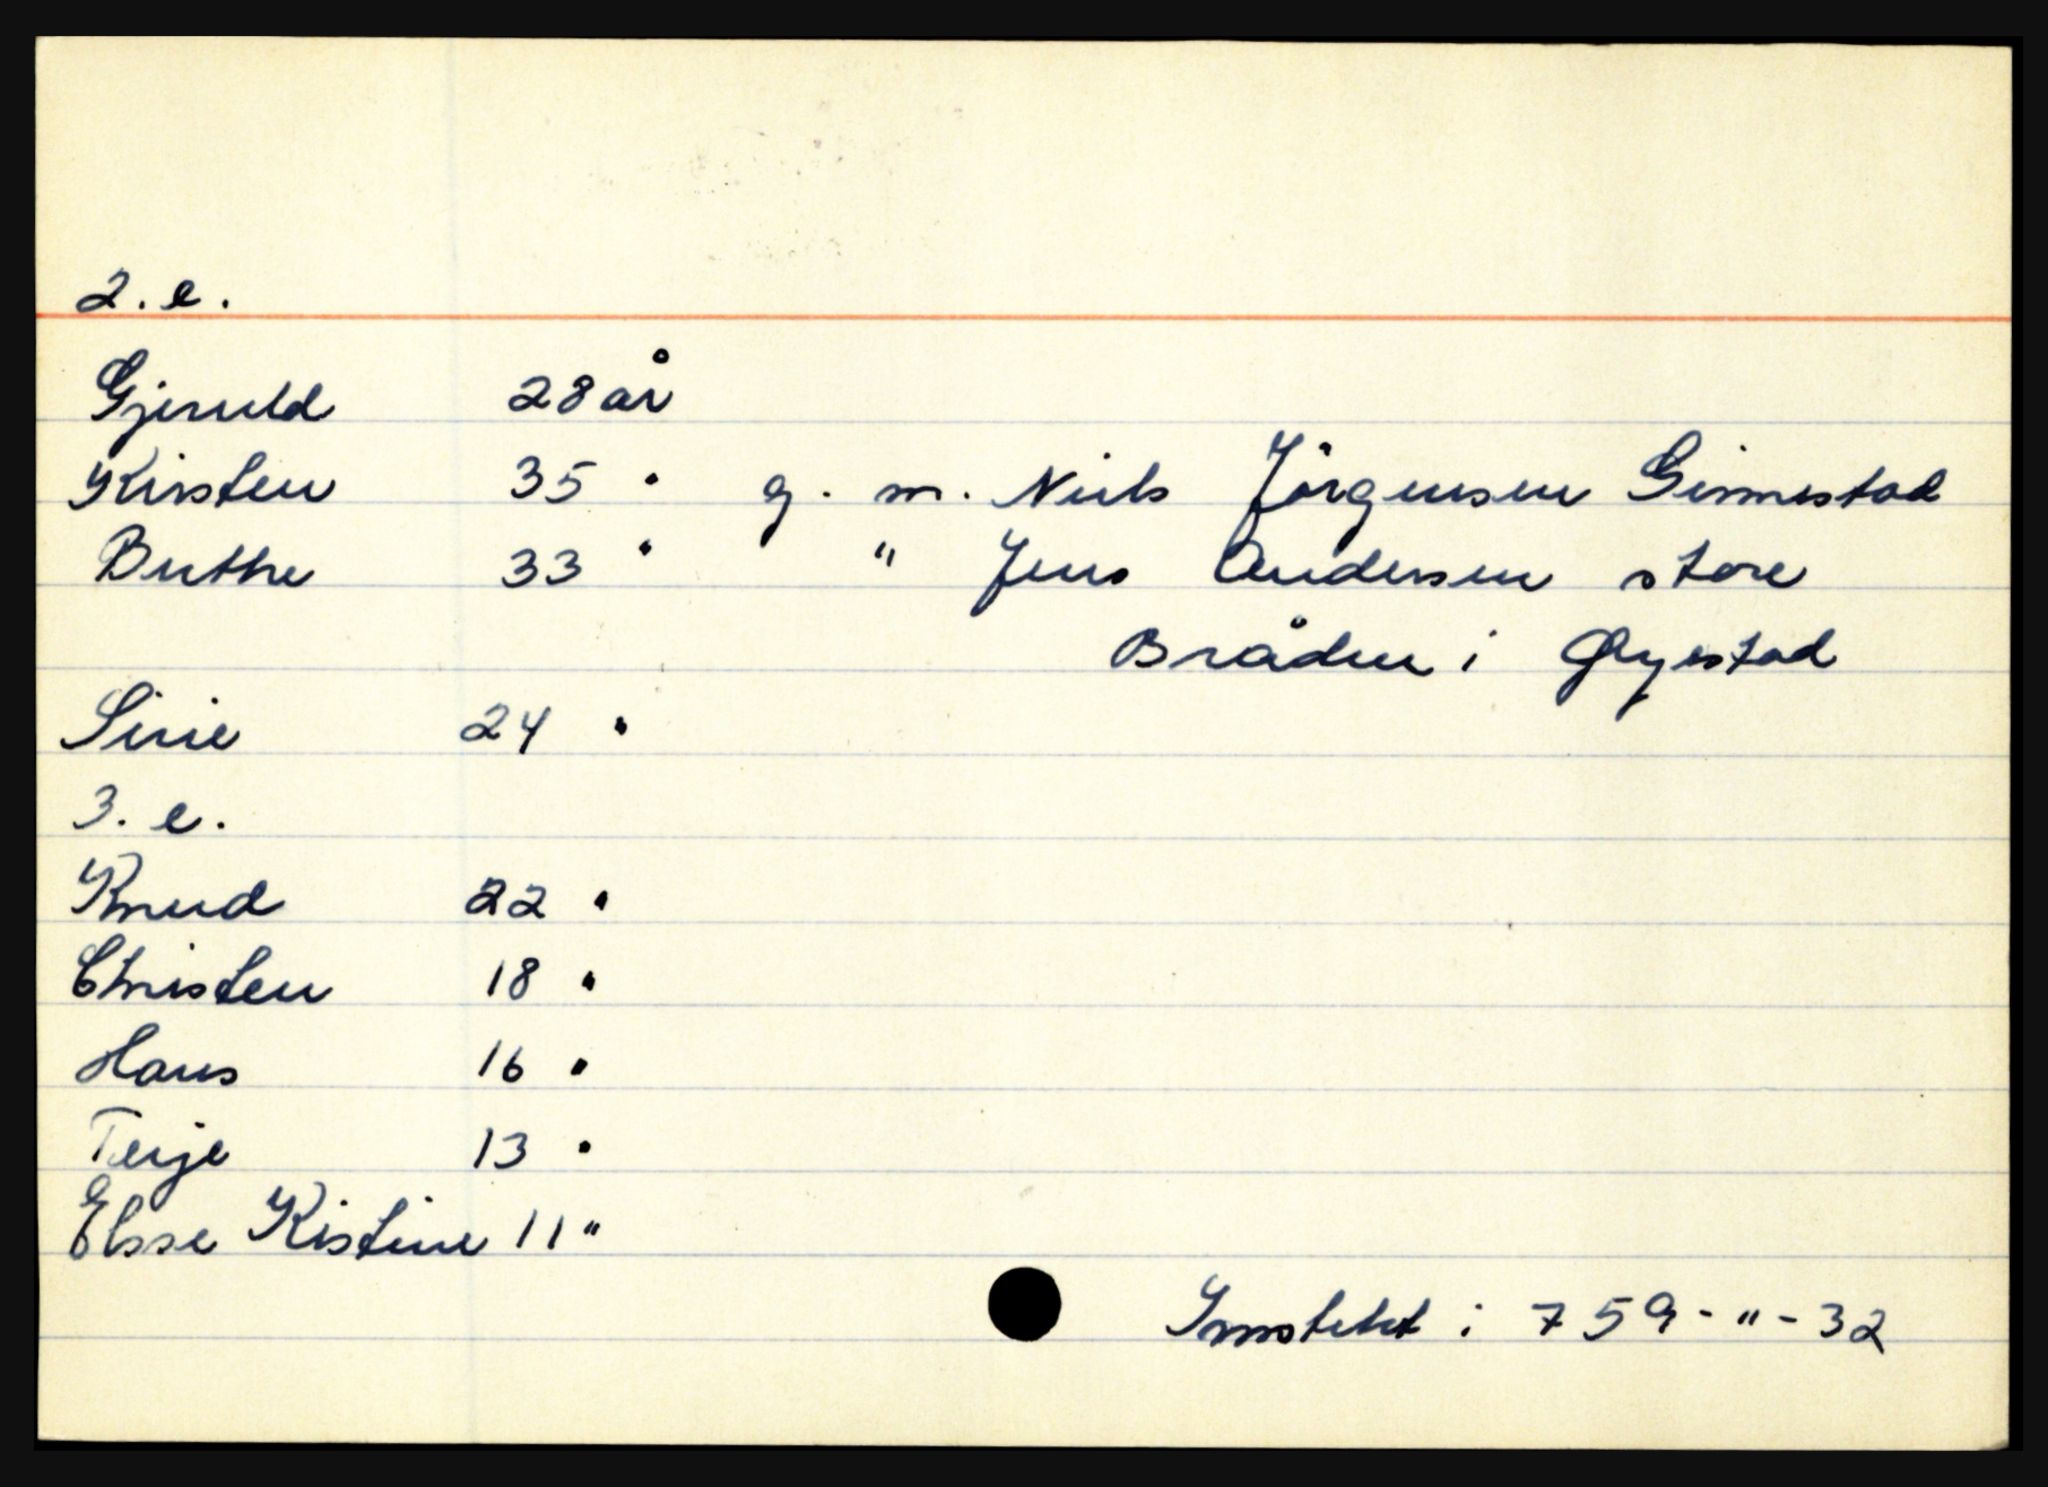 2. e.
Gjeruld 28 år
Kirsten 35 " g. m. Niels Jørgensen Gimmestad
Berthe 33 " " Jens Andersen store
Bråden i Øyestad
Sirie 24 "
3. e.
Knud 22 "
Christen 18 "
Hans 16 "
Terje 13 "
Elsse Kistine 11 "
i 759 - " - 32